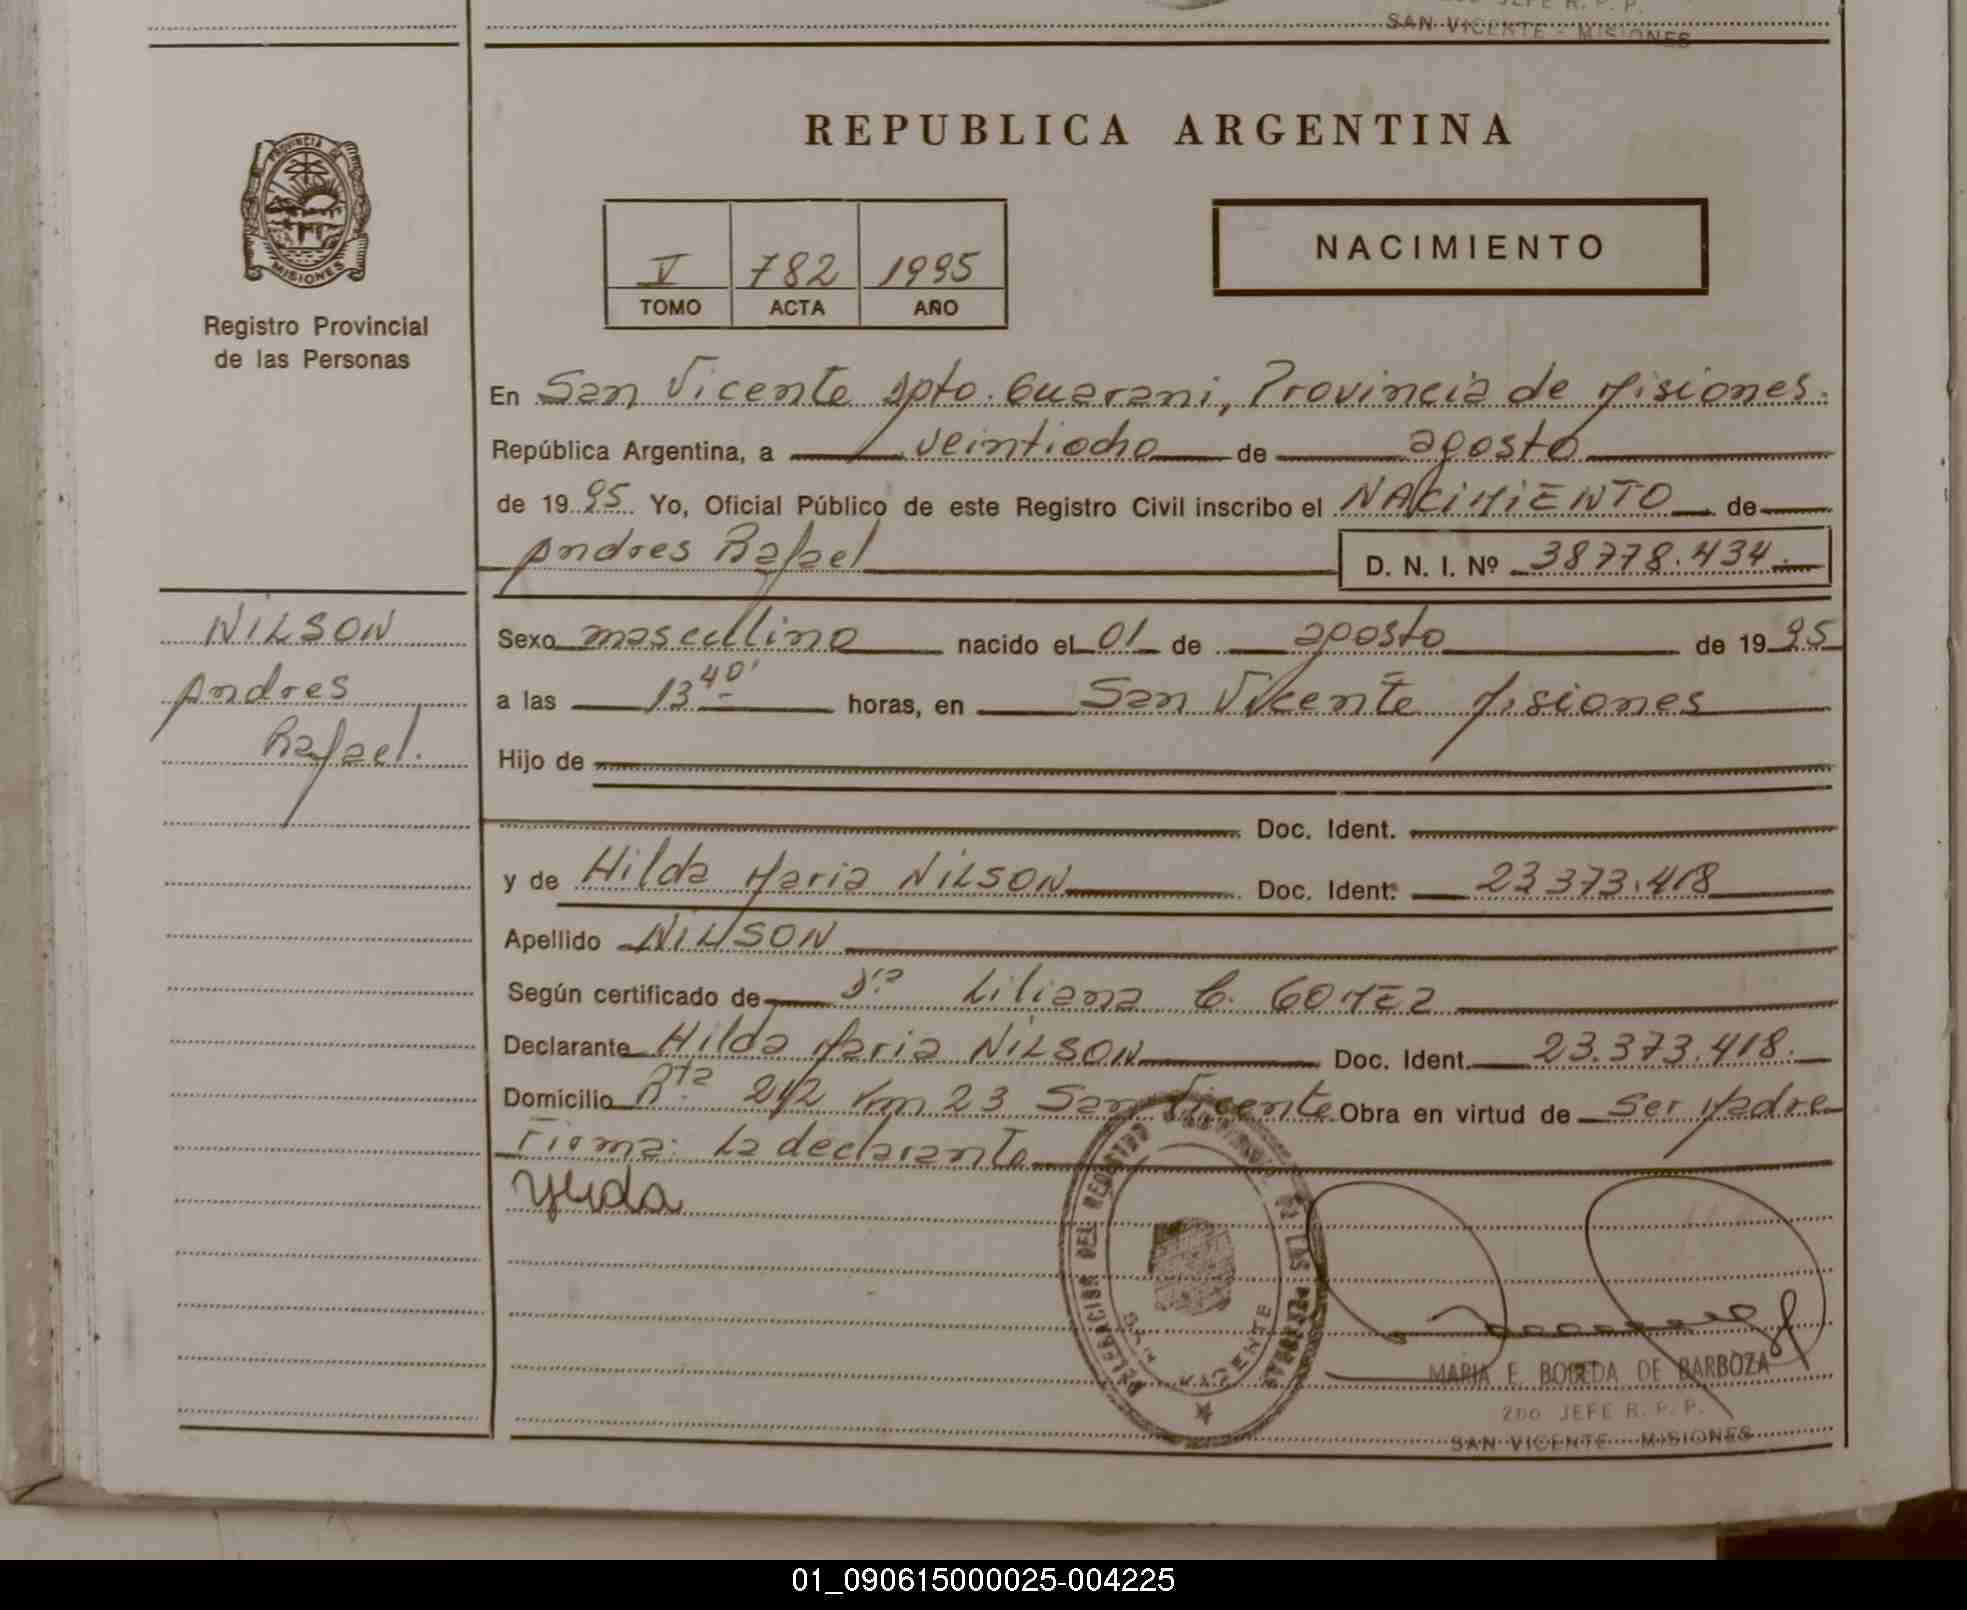 SAN VICENTE - MISIONES
PROVINCIA DE
MISIONES
Registro Provincial
de las Personas
REPUBLICA ARGENTINA
V 782 1995
TOMO ACTA AÑO
NACIMIENTO
En San Vicente Dpto. Guarani, Provincia de Misiones.
República Argentina, a veintiocho de agosto
de 1995 Yo, Oficial Público de este Registro Civil inscribo el NACIMIENTO de
Andres Rafael D. N. I. Nº 38778.434.
NILSON
Andres
Rafael.
Sexo masculino nacido el 01 de agosto de 1995
a las 13 40' horas, en San Vicente Misiones
Hijo de
Doc. Ident.
y de Hilda Maria NILSON Doc. Ident. 23.373.418
Apellido NILSON
Según certificado de Dra Liliana C. GOMEZ
Declarante Hilda Maria NILSON Doc. Ident. 23.373.418.
Domicilio Rta. 212 Km 23 San Vicente Obra en virtud de Ser Madre
Firma: La declarante
DELEGACION DEL REGISTRO DE LAS PERSONAS
SAN VICENTE
MARIA E. BOBEDA DE BARBOZA
2DO JEFE R. P. P.
SAN VICENTE MISIONES
01_090615000025-004225